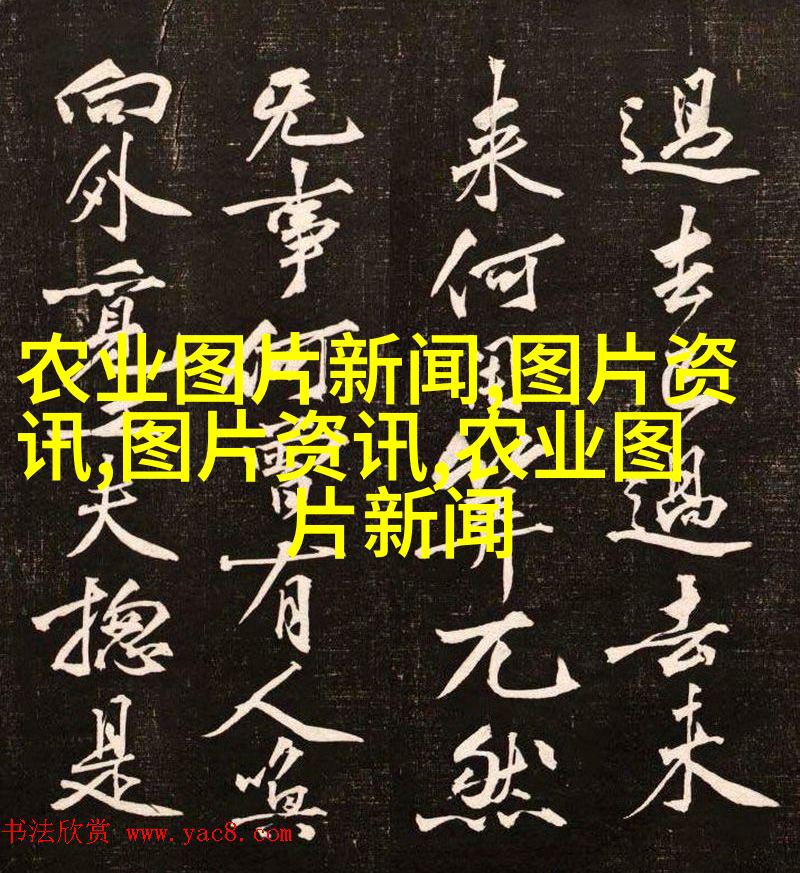 過去已過去未
来何用筭兀然
无事何曾有人唤
向外覓工夫揔是
农业图片新闻,图片资
讯,图片资讯,农业图
片新闻
书法欣赏 www.yac8.com